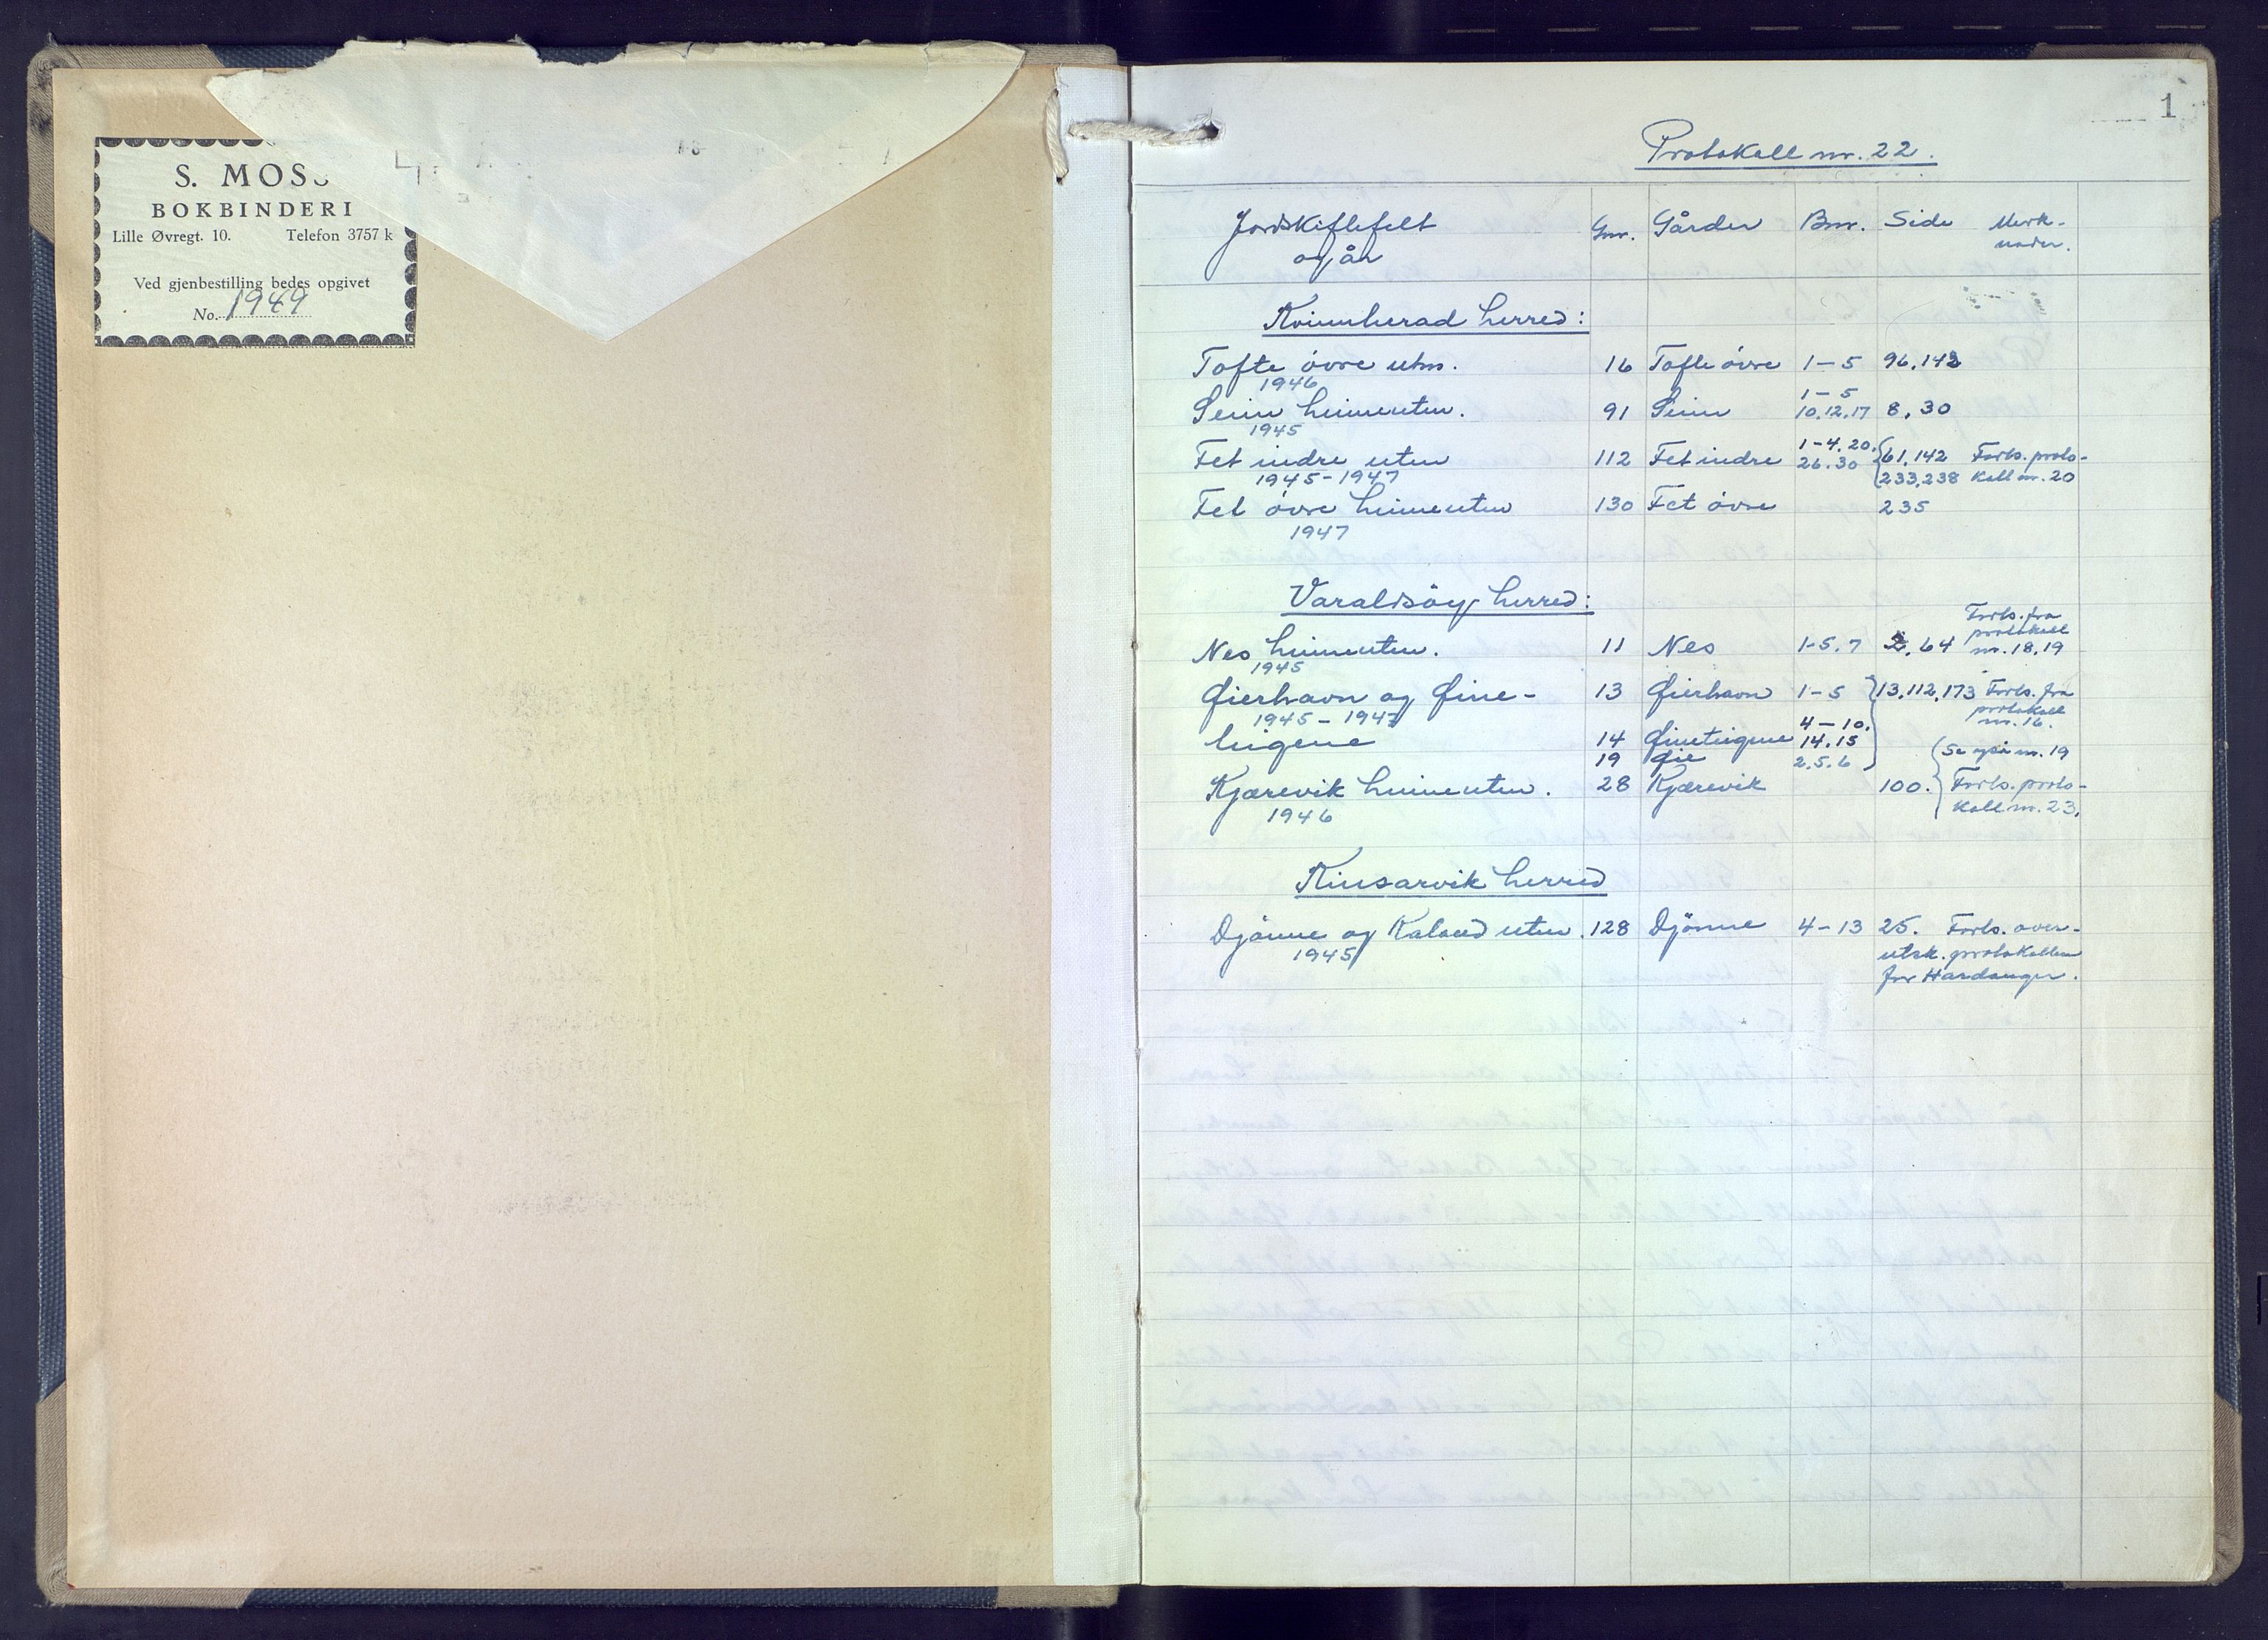 S. MOS
BOKBINDERI
Lille Øvregt. 10. Telefon 3757 k
Ved gjenbestilling bedes opgivet
No. 1949
1
Protokoll nr. 22.
Jordskiftefelt Gnr. Gårder Bnr. Side Merk-
og år nader.
Kvinnherad herred:
Tofte övre utm. 16 Tofte övre 1-5 96,142
1946
1-5
Seim heimeutm. 91 Seim 10.12.17 8, 30
1945
1-4.20.
Fet indre utm 112 Fet indre 26.30 61,142 Forts. proto-
1945-1947 233,238 koll nr. 20
Fet övre heimeutm 130 Fet övre 235
1947
Varaldsöy herred:
Forts. fra
protokoll
Nes heimeutm. 11 Nes 1-5.7 2, 64 nr. 18,19
1945
Øierhavn og Øine- 13 Øierhavn 1-5 13,112,173 Forts. fra
1945-1947 protokoll
4-10. nr. 16.
teigene 14 Øineteigene 14.15 (Se også nr. 19
19 Øie 2.5.6
Kjærevik heimeutm. 28 Kjærevik 100. Forts. proto-
1946 koll nr. 23.
Kinsarvik herred
Djönne og Kaland utm. 128 Djönne 4-13 25. Forts. over-
1945 utsk. protokollen
for Hardanger.